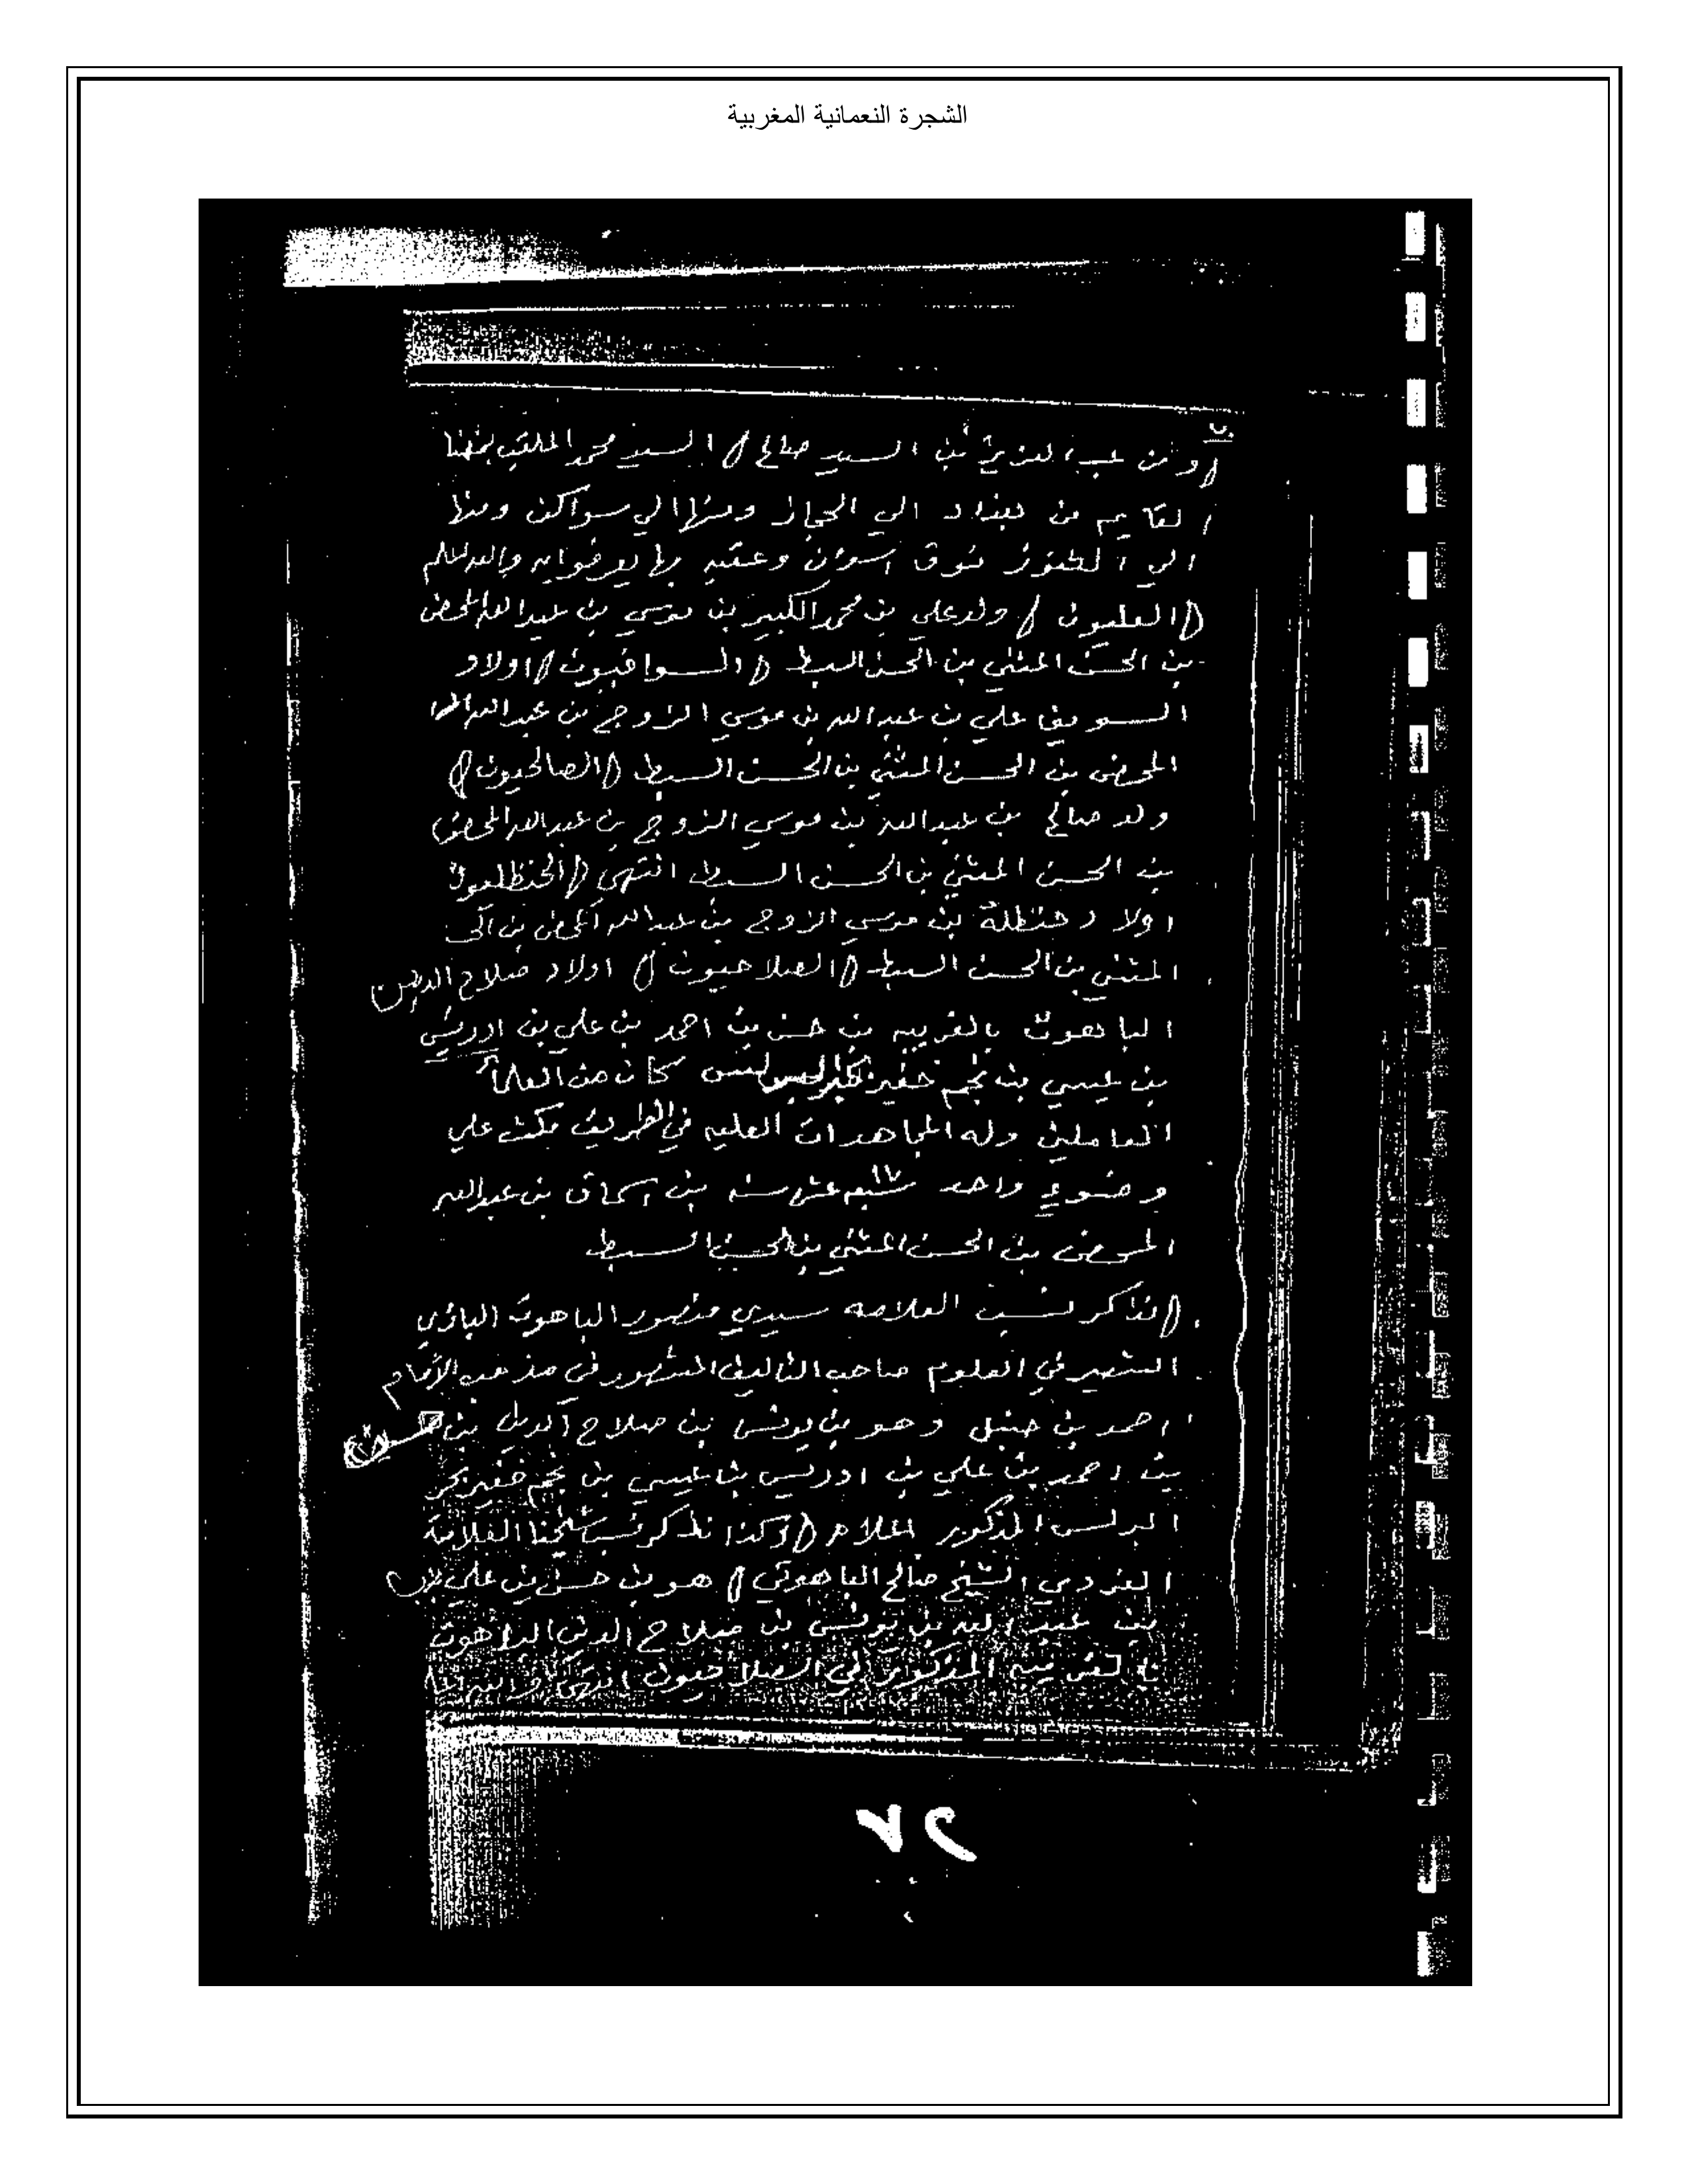 الشجرة النعمانية المغربية
ومن عبد العزيز بن السيد صالح السيد محمد الملقب
القايم من بغداد الي الحجاز ومنها الي سواكن ومنها
الي فوق اسوان وعقبه بها يعرفوا به والله اعلم
العليون ولد علي بن محمد الكبير بن موسي بن عبد الله المحض
بن الحسن المثني بن الحسن السبط السواقيون اولاد
السويق علي بن عبد الله بن موسي الزوج بن عبد الله
المحض بن الحسن المثني بن الحسن السبط الصالحيون
ولد صالح بن عبد الله بن موسي الزوج بن عبد الله المحض
بن الحسن المثني بن الحسن السبط انتهى الحنظليون
اولاد حنظلة بن موسي الزوج بن عبد الله المحض بن الحسن
المثني بن الحسن السبط الصلاحيون اولاد صلاح الدين
الباهوت بالغربيه بن حسن بن احمد بن علي بن ادريس
بن عيسي بن نجم خفير كان من العلماء
العاملين وله المجاهدات العليه في الطريق مكث علي
وضوء واحد ١٧ سبعه عشر سنه بن اسحاق بن عبد الله
المحض بن الحسن المثني بن الحسن السبط
نذكر نسب العلامه سيدي منصور الباهوت
الشهير في العلوم صاحب التاليف المشهور في مذهب الامام
احمد بن حنبل وهو بن يونس بن صلاح الدين بن حسن
بن احمد بن علي بن ادريس بن عيسي بن نجم خفير بحر
البرلس المذكور اعلاه وكذا نذكر نسب شيخنا العلامة
الشيخ صالح الباهوتي هو بن حسن بن علي
بن عبد الله بن يونس بن صلاح الدين الباهوت
بالغربيه المذكور في الصلاحيون انتهى والله اعلم
٢٢